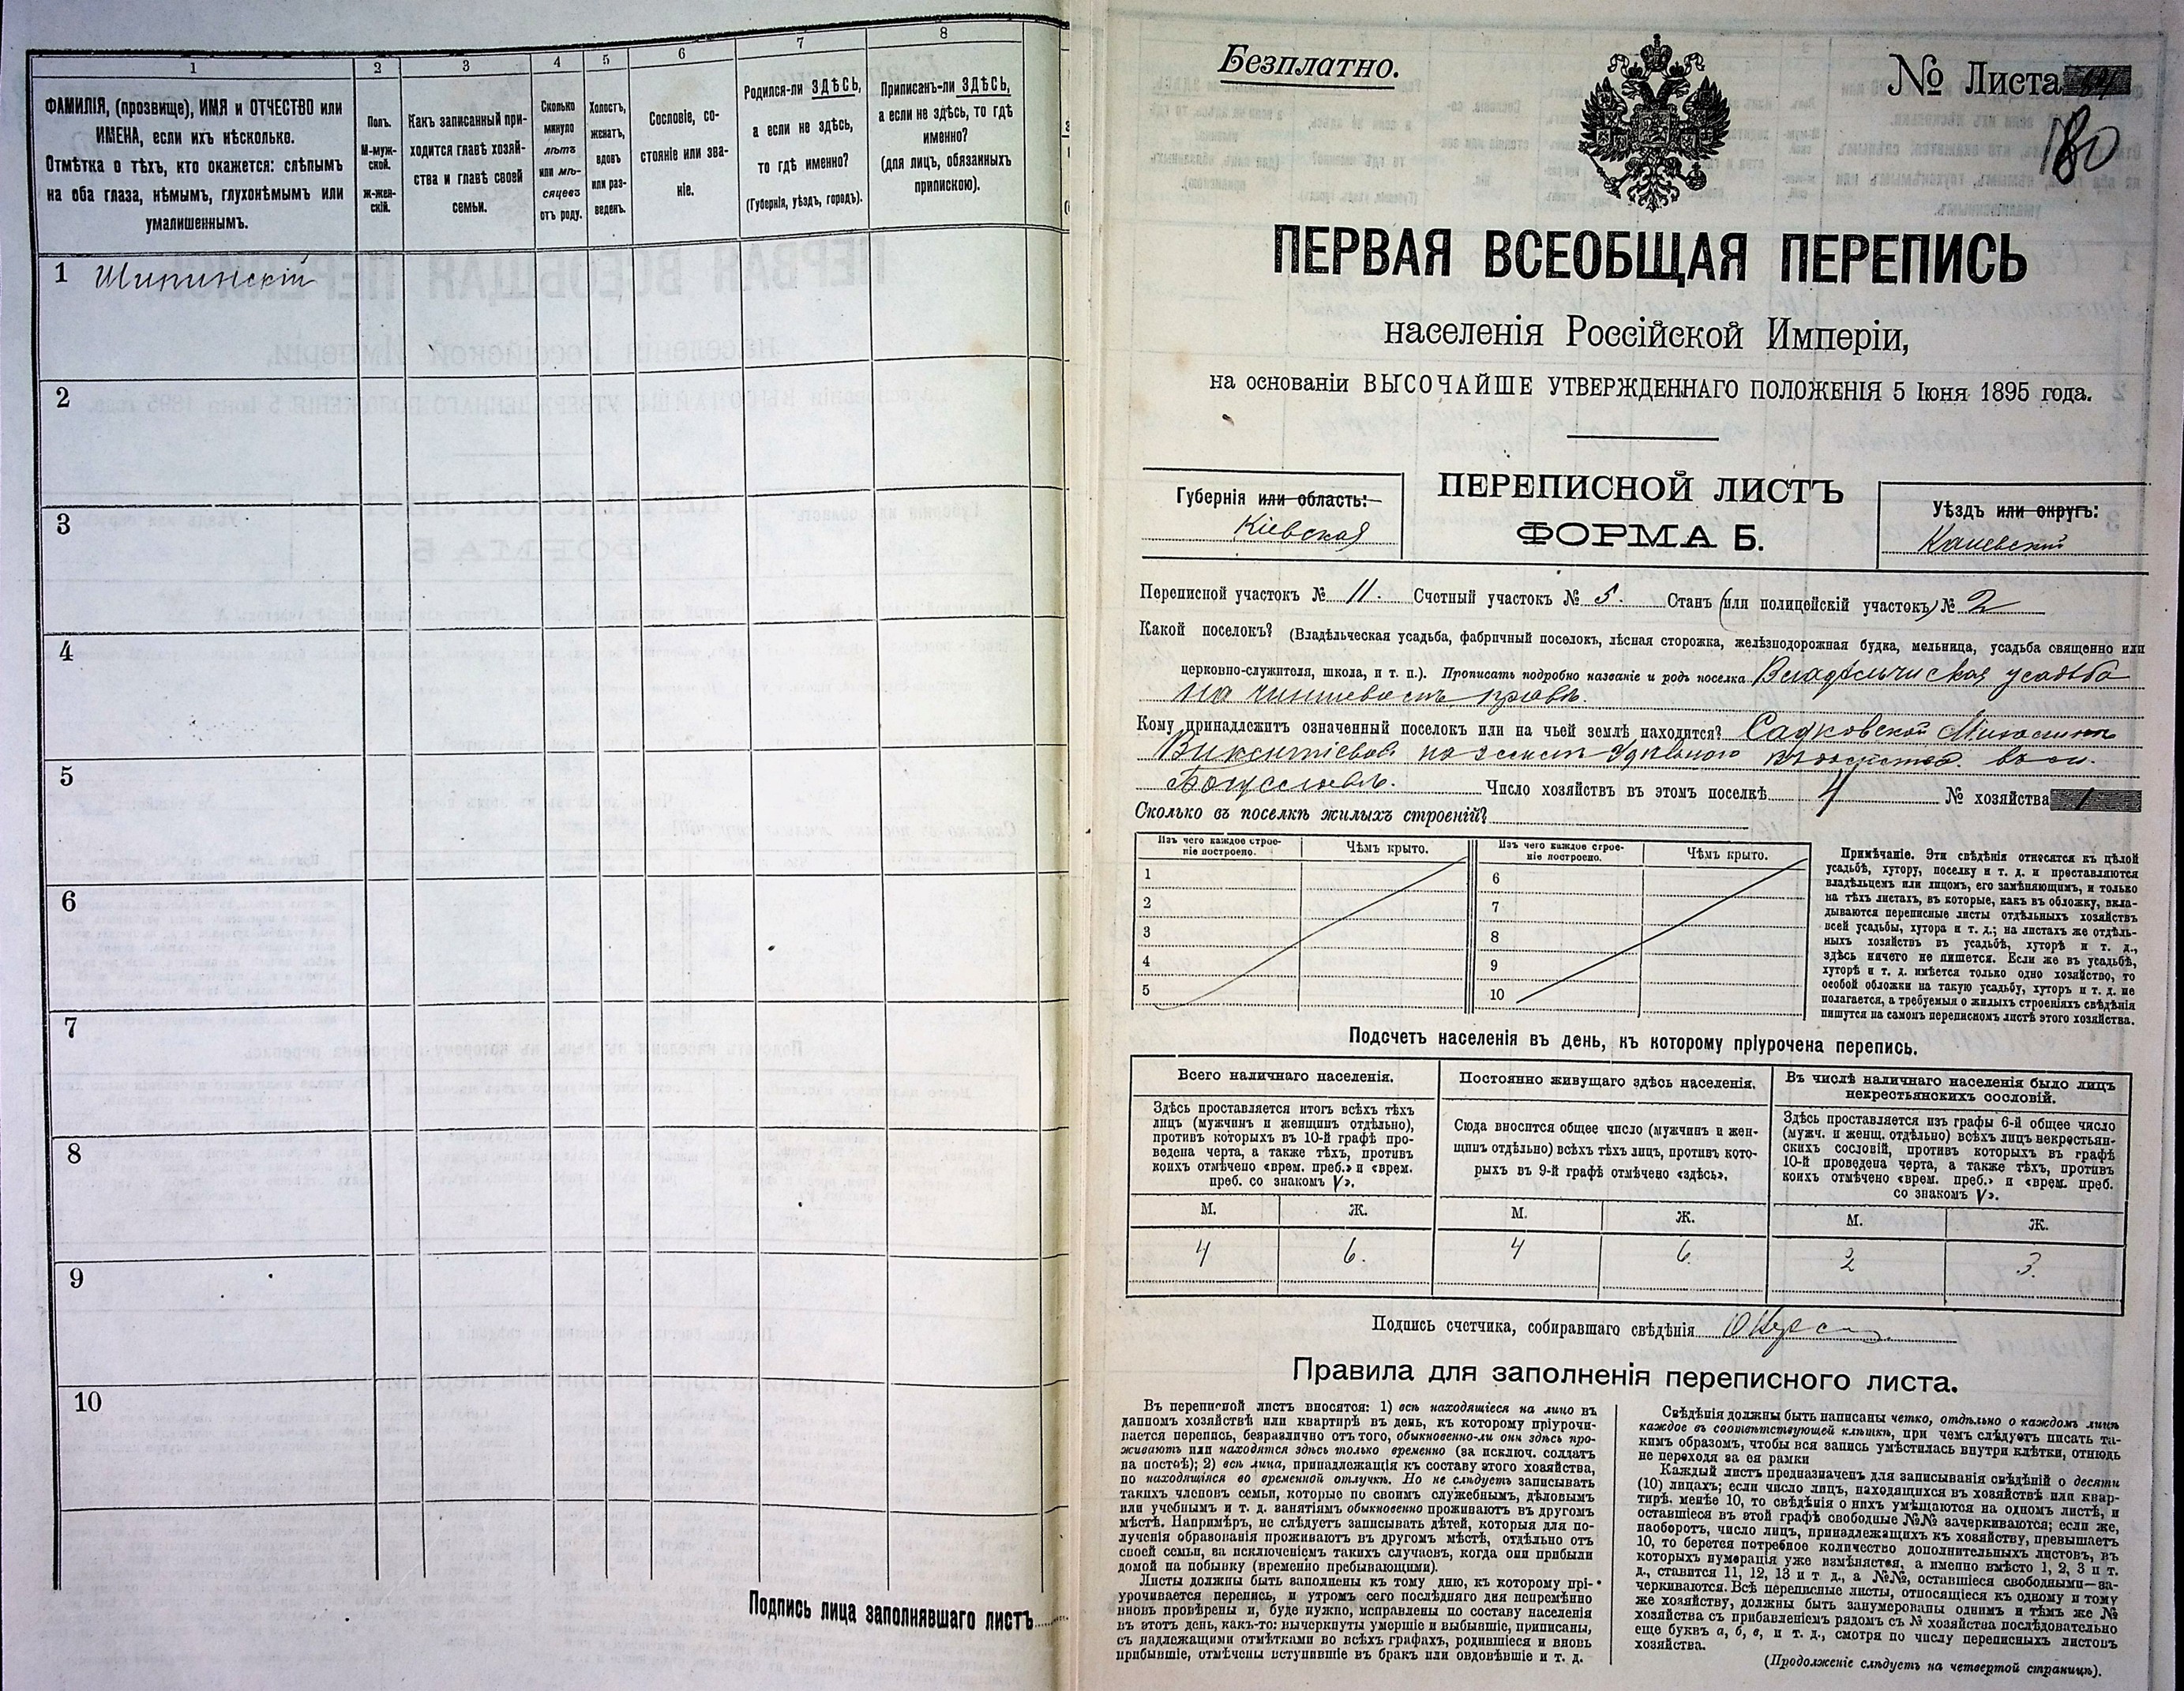 1
2
3
4
5
6
7
8
ФАМИЛІЯ, (прозвище), ИМЯ и ОТЧЕСТВО или
ИМЕНА, если ихъ нѣсколько.
Отмѣтка о тѣхъ, кто окажется: слѣпымъ
на оба глаза, нѣмымъ, глухонѣмымъ или
умалишеннымъ.
Полъ.
М-муж-
ской.
ж-жен-
скій.
Какъ записанный при-
ходится главѣ хозяй-
ства и главѣ своей
семьи.
Сколько
минуло
лѣтъ
или мѣ-
сяцевъ
отъ роду.
Холостъ,
женатъ,
вдовъ
или раз-
веденъ.
Сословіе, со-
стояніе или зва-
ніе.
Родился-ли ЗДѢСЬ,
а если не здѣсь,
то гдѣ именно?
(Губернія, уѣздъ, городъ).
Приписанъ-ли ЗДѢСЬ,
а если не здѣсь, то гдѣ
именно?
(для лицъ, обязанныхъ
припискою).
1 Шипинскій
2
3
4
5
6
7
8
9
10
Подпись лица заполнявшаго листъ
Безплатно.
№ Листа
180
ПЕРВАЯ ВСЕОБЩАЯ ПЕРЕПИСЬ
населенія Россійской Имперіи,
на основаніи ВЫСОЧАЙШЕ УТВЕРЖДЕННАГО ПОЛОЖЕНІЯ 5 Іюня 1895 года.
Губернія или область:
Кіевская
ПЕРЕПИСНОЙ ЛИСТЪ
ФОРМА Б.
Уѣздъ или округъ:
Каневскій
Переписной участокъ № 11. Счетный участокъ № 5. Станъ (или полицейскій участокъ) № 2
Какой поселокъ? (Владѣльческая усадьба, фабричный поселокъ, лѣсная сторожка, желѣзнодорожная будка, мельница, усадьба священно или
церковно-служителя, школа, и т. п.). Прописать подробно названіе и родъ поселка Владѣльческая усадьба
на чиншевомъ правѣ.
Кому принадлежитъ означенный поселокъ или на чьей землѣ находится? Садковской
Викентіевой на землѣ Удѣльнаго
Богуславъ. Число хозяйствъ въ этомъ поселкѣ 4 № хозяйства 1
Сколько въ поселкѣ жилыхъ строеній?
Изъ чего каждое строе-
ніе построено.
Чѣмъ крыто.
1
2
3
4
5
Изъ чего каждое строе-
ніе построено.
Чѣмъ крыто.
6
7
8
9
10
Примѣчаніе. Эти свѣдѣнія относятся къ цѣлой
усадьбѣ, хутору, поселку и т. д. и проставляются
владѣльцемъ или лицомъ, его замѣняющимъ, и только
на тѣхъ листахъ, въ которые, какъ въ обложку, вкла-
дываются переписные листы отдѣльныхъ хозяйствъ
всей усадьбы, хутора и т. д.; на листахъ же отдѣль-
ныхъ хозяйствъ въ усадьбѣ, хуторѣ и т. д.,
здѣсь ничего не пишется. Если же въ усадьбѣ,
хуторѣ и т. д. имѣется только одно хозяйство, то
особой обложки на такую усадьбу, хуторъ и т. д. не
полагается, а требуемыя о жилыхъ строеніяхъ свѣдѣнія
пишутся на самомъ переписномъ листѣ этого хозяйства.
Подсчетъ населенія въ день, къ которому пріурочена перепись.
Всего наличнаго населенія.
Здѣсь проставляется итогъ всѣхъ тѣхъ
лицъ (мужчинъ и женщинъ отдѣльно),
противъ которыхъ въ 10-й графѣ про-
ведена черта, а также тѣхъ, противъ
коихъ отмѣчено «врем. преб.» и «врем.
преб. со знакомъ V».
Постоянно живущаго здѣсь населенія.
Сюда вносится общее число (мужчинъ и жен-
щинъ отдѣльно) всѣхъ тѣхъ лицъ, противъ кото-
рыхъ въ 9-й графѣ отмѣчено «здѣсь».
Въ числѣ наличнаго населенія было лицъ
некрестьянскихъ сословій.
Здѣсь проставляется изъ графы 6-й общее число
(мужч. и женщ. отдѣльно) всѣхъ лицъ некрестьян-
скихъ сословій, противъ которыхъ въ графѣ
10-й проведена черта, а также тѣхъ, противъ
коихъ отмѣчено «врем. преб.» и «врем. преб.
со знакомъ V».
М. Ж. М. Ж. М. Ж.
4 6. 4 6. 2 3.
Подпись счетчика, собиравшаго свѣдѣнія
Правила для заполненія переписного листа.
Въ переписной листъ вносятся: 1) всѣ находящіеся на лицо въ
данномъ хозяйствѣ или квартирѣ въ день, къ которому пріурочи-
вается перепись, безразлично отъ того, обыкновенно-ли они здѣсь про-
живаютъ или находятся здѣсь только временно (за исключ. солдатъ
на постоѣ); 2) всѣ лица, принадлежащія къ составу этого хозяйства,
но находящіяся во временной отлучкѣ. Но не слѣдуетъ записывать
такихъ членовъ семьи, которые по своимъ служебнымъ, дѣловымъ
или учебнымъ и т. д. занятіямъ обыкновенно проживаютъ въ другомъ
мѣстѣ. Напримѣръ, не слѣдуетъ записывать дѣтей, которыя для по-
лученія образованія проживаютъ въ другомъ мѣстѣ, отдѣльно отъ
своей семьи, за исключеніемъ такихъ случаевъ, когда они прибыли
домой на побывку (временно пребывающими).
Листы должны быть заполнены къ тому дню, къ которому прі-
урочивается перепись, и утромъ сего послѣдняго дня непремѣнно
вновь провѣрены и, буде нужно, исправлены по составу населенія
въ этотъ день, какъ-то: вычеркнуты умершіе и выбывшіе, приписаны,
съ надлежащими отмѣтками во всѣхъ графахъ, родившіеся и вновь
прибывшіе, отмѣчены вступившіе въ бракъ или овдовѣвшіе и т. д.
Свѣдѣнія должны быть написаны четко, отдѣльно о каждомъ лицѣ
каждое въ соотвѣтствующей клѣткѣ, при чемъ слѣдуетъ писать та-
кимъ образомъ, чтобы вся запись умѣстилась внутри клѣтки, отнюдь
не переходя за ея рамки
Каждый листъ предназначенъ для записыванія свѣдѣній о десяти
(10) лицахъ; если число лицъ, находящихся въ хозяйствѣ или квар-
тирѣ. менѣе 10, то свѣдѣнія о нихъ умѣщаются на одномъ листѣ, и
оставшіеся въ этой графѣ свободные №№ зачеркиваются; если же,
наоборотъ, число лицъ, принадлежащихъ къ хозяйству, превышаетъ
10, то берется потребное количество дополнительныхъ листовъ, въ
которыхъ нумерація уже измѣняется, а именно вмѣсто 1, 2, 3 и т.
д., ставится 11, 12, 13 и т. д., а №№, оставшіеся свободными—за-
черкиваются. Всѣ переписные листы, относящіеся къ одному и тому
же хозяйству, должны быть занумерованы однимъ и тѣмъ же №
хозяйства съ прибавленіемъ рядомъ съ № хозяйства послѣдовательно
еще буквъ а, б, в, и т. д., смотря по числу переписныхъ листовъ
хозяйства.
(Продолженіе слѣдуетъ на четвертой страницѣ).